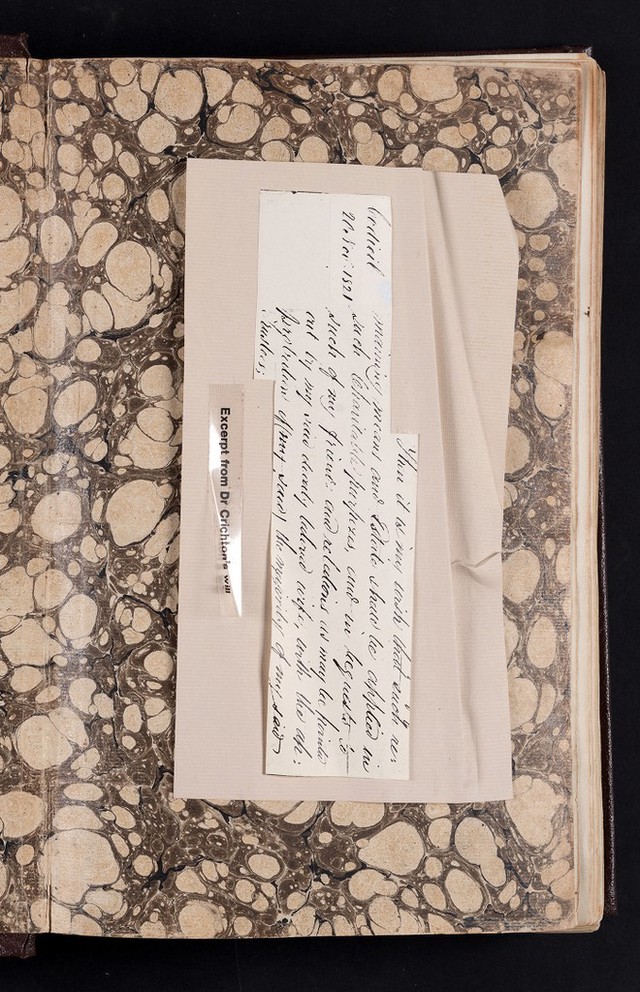 Codicil
21 Nov: 1821.
Then it is my wish that such re:
maining means and Estate shall be applied in
such Charitable purposes, and in bequests to
such of my friends and relations as may be
out by my said dearly beloved wife, with the ap:
probation of my said the majority of my said
trustees;
Excerpt from Dr Crichton's will